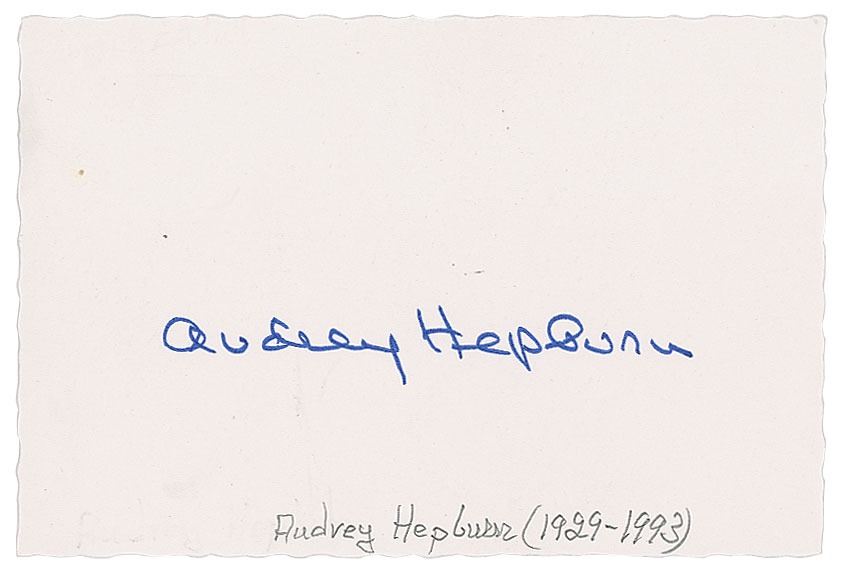 Audrey Hepburn
Audrey Hepburn (1929-1993)